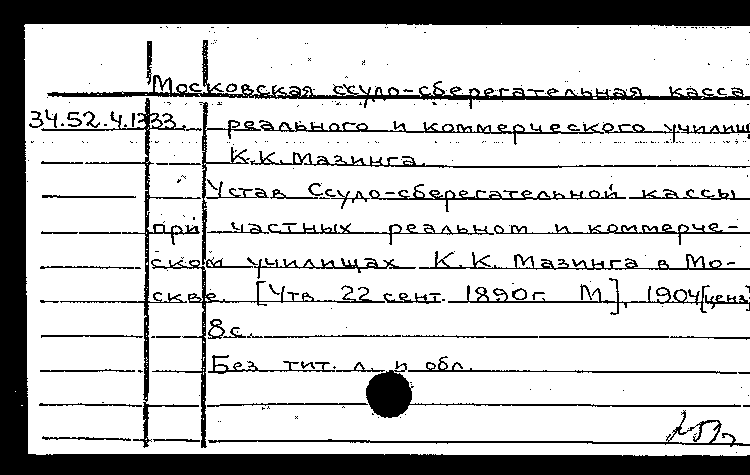 Московская ссудо-сберегательная касса
34.52.4.1333. реального и коммерческого училищ
К.К. Мазинга.
Устав Ссудо-сберегательной кассы
при частных реальном и коммерче-
ском училищах К.К. Мазинга в Мо-
скве. [Утв. 22 сент. 1890г. М.], 1904[ценз]
8с.
Без тит. л. и обл.